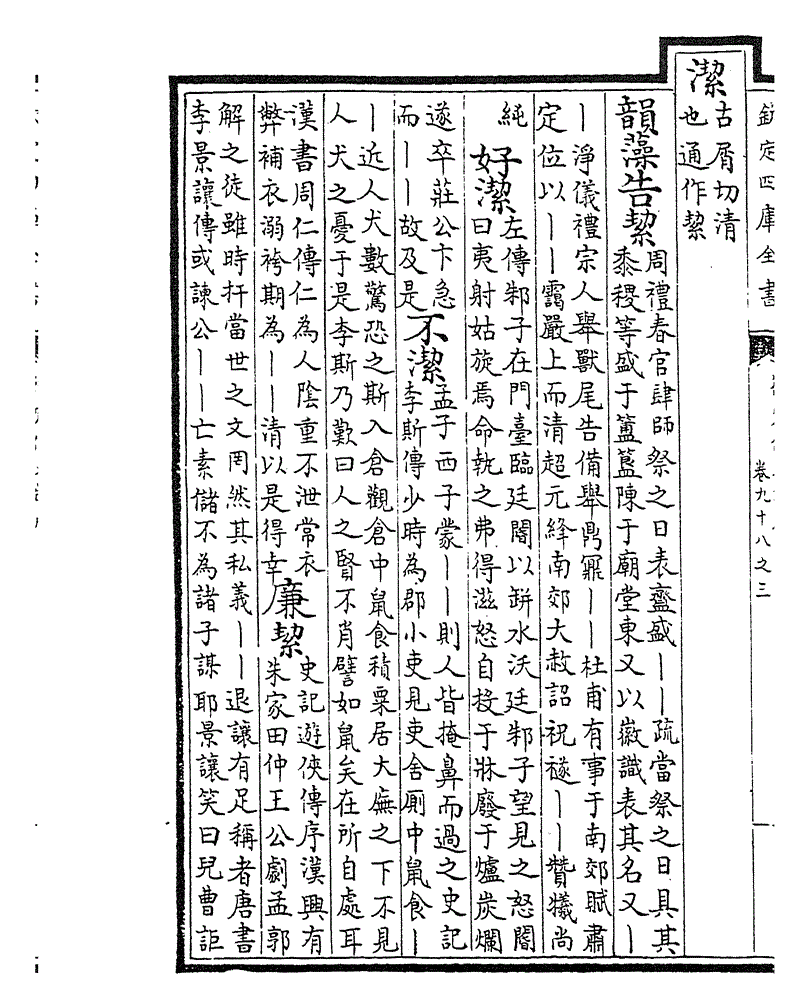 欽定四庫全書
卷九十八之三
潔
古屑切清
也通作絜
韻藻告絜
周禮春官肆師祭之日表齍盛丨丨疏當祭之日具其
黍稷等盛于簠簋陳于廟堂東又以徽識表其名又丨
丨淨儀禮宗人舉獸尾告備舉鼎鼏丨丨杜甫有事于南郊賦肅
定位以丨丨靄嚴上而清超元絳南郊大赦詔祝襚丨丨贊犧尚
純
好潔
左傳邾子在門臺臨廷閽以缾水沃廷邾子望見之怒閽
曰夷射姑旋焉命執之弗得滋怒自投于牀廢于爐炭爛
遂卒莊公卞急
而丨丨故及是
不潔
孟子西子蒙丨丨則人皆掩鼻而過之史記
李斯傳少時為郡小吏見吏舍厠中鼠食丨
丨近人犬數驚恐之斯入倉觀倉中鼠食積粟居大廡之下不見
人犬之憂于是李斯乃歎曰人之賢不肖譬如鼠矣在所自處耳
漢書周仁傳仁為人陰重不泄常衣
弊補衣溺袴期為丨丨清以是得幸
廉絜
史記遊俠傳序漢興有
朱家田仲王公劇孟郭
解之徒雖時扞當世之文罔然其私義丨丨退讓有足稱者唐書
李景讓傳或諫公丨丨亡素儲不為諸子謀耶景讓笑曰兒曹詎